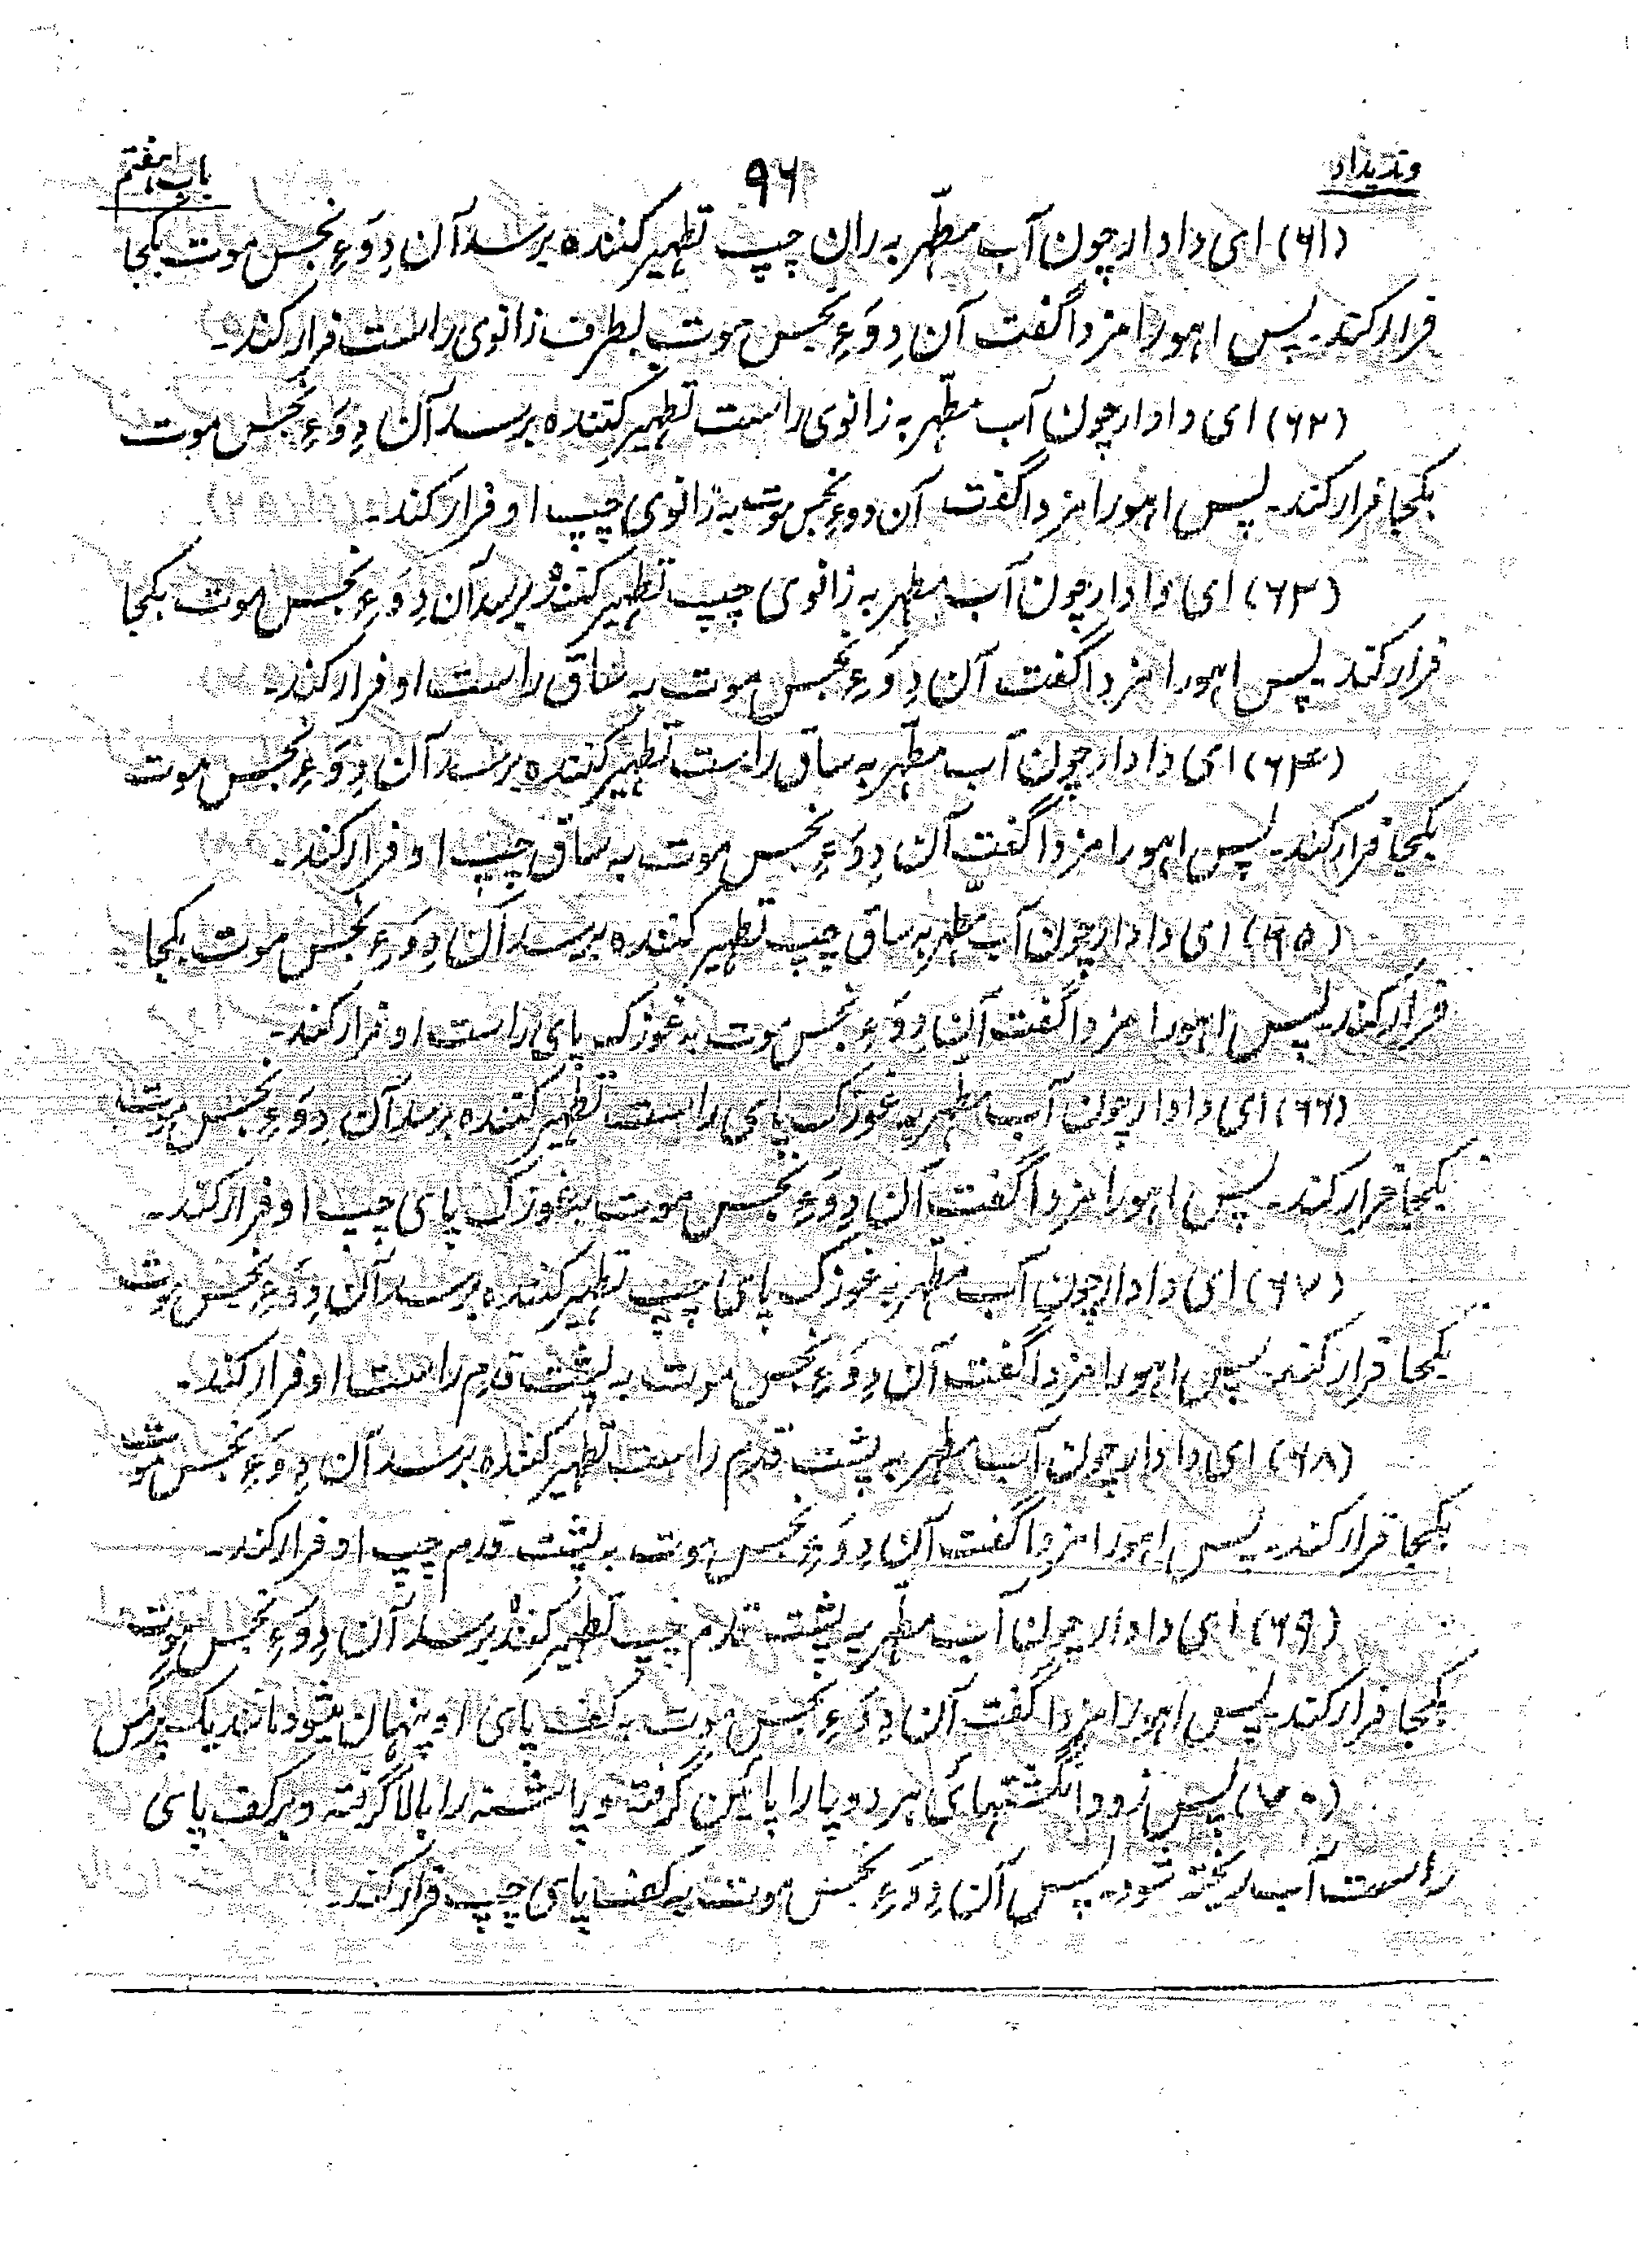 وندیداد
۹۶
باب هفتم
(۶۱) ای دادار چون آب مطّهر به ران چپ تطهیر کننده برسد آن دِوَءِ نجس موت بکجا
فرار کند۔ پس اهورا مزدا گفت آن دِوَءِ نجس موت بطرف زانوی راست فرار کند۔
(۶۲) ای دادار چون آب مطّهر به زانوی راست تطهیر کننده برسد آن دِوَءِ نجس موت
بکجا فرار کند۔ پس اهورا مزدا گفت آن دوءِ نجس موت به زانوی چپ او فرار کند۔
(۶۳) ای دادار چون آب مطهر به زانوی چپ تطهیر کننده برسد آن دِوَءِ نجس موت بکجا
فرار کند۔ پس اهورا مزدا گفت آن دِوَءِ نجس موت به ساق راست او فرار کند۔
(۶۴) ای دادار چون آب مطّهر به ساق راست تطهیر کننده برسد آن دِوَءِ نجس موت
بکجا فرار کند۔ پس اهورا مزدا گفت آن دِوَءِ نجس موت به ساق چپ او فرار کند۔
(۶۵) ای دادار چون آب مطّهر به ساق چپ تطهیر کننده برسد آن دِوَءِ نجس موت بکجا
فرار کند۔ پس اهورا مزدا گفت آن دِوَءِ نجس موت به غوزک پای راست او فرار کند۔
(۶۶) ای دادار چون آب مطّهر به غوزک پای راست تطهیر کننده برسد آن دِوَءِ نجس موت
بکجا فرار کند۔ پس اهورا مزدا گفت آن دِوَءِ نجس موت بغوزک پای چپ او فرار کند۔
(۶۷) ای دادار چون آب مطّهر به غوزک پای چپ تطهیر کننده برسد آن دِوَءِ نجس موت
بکجا فرار کند۔ پس اهورا مزدا گفت آن دِوَءِ نجس موت به پشت قدم راست او فرار کند۔
(۶۸) ای دادار چون آب مطهر به پشت قدم راست تطهیر کننده برسد آن دِوَءِ نجس موت
بکجا فرار کند۔ پس اهورا مزدا گفت آن دِوَءِ نجس موت به پشت قدم چپ او فرار کند۔
(۶۹) ای دادار چون آب مطّهر به پشت قدم چپ تطهیر کننده برسد آن دِوَءِ نجس موت
بکجا فرار کند۔ پس اهورا مزدا گفت آن دِوَءِ نجس موت به کف پای او پنهان بشود مانند یک پر مگس
(۷۰) پس زود انگشتهای هر دو پا را پائین گرفته و پاشنه را بالا گرفته و بر کف پای
راست آب ریخته شود۔ پس آن دِوَءِ نجس موت به کف پای چپ فرار کند۔